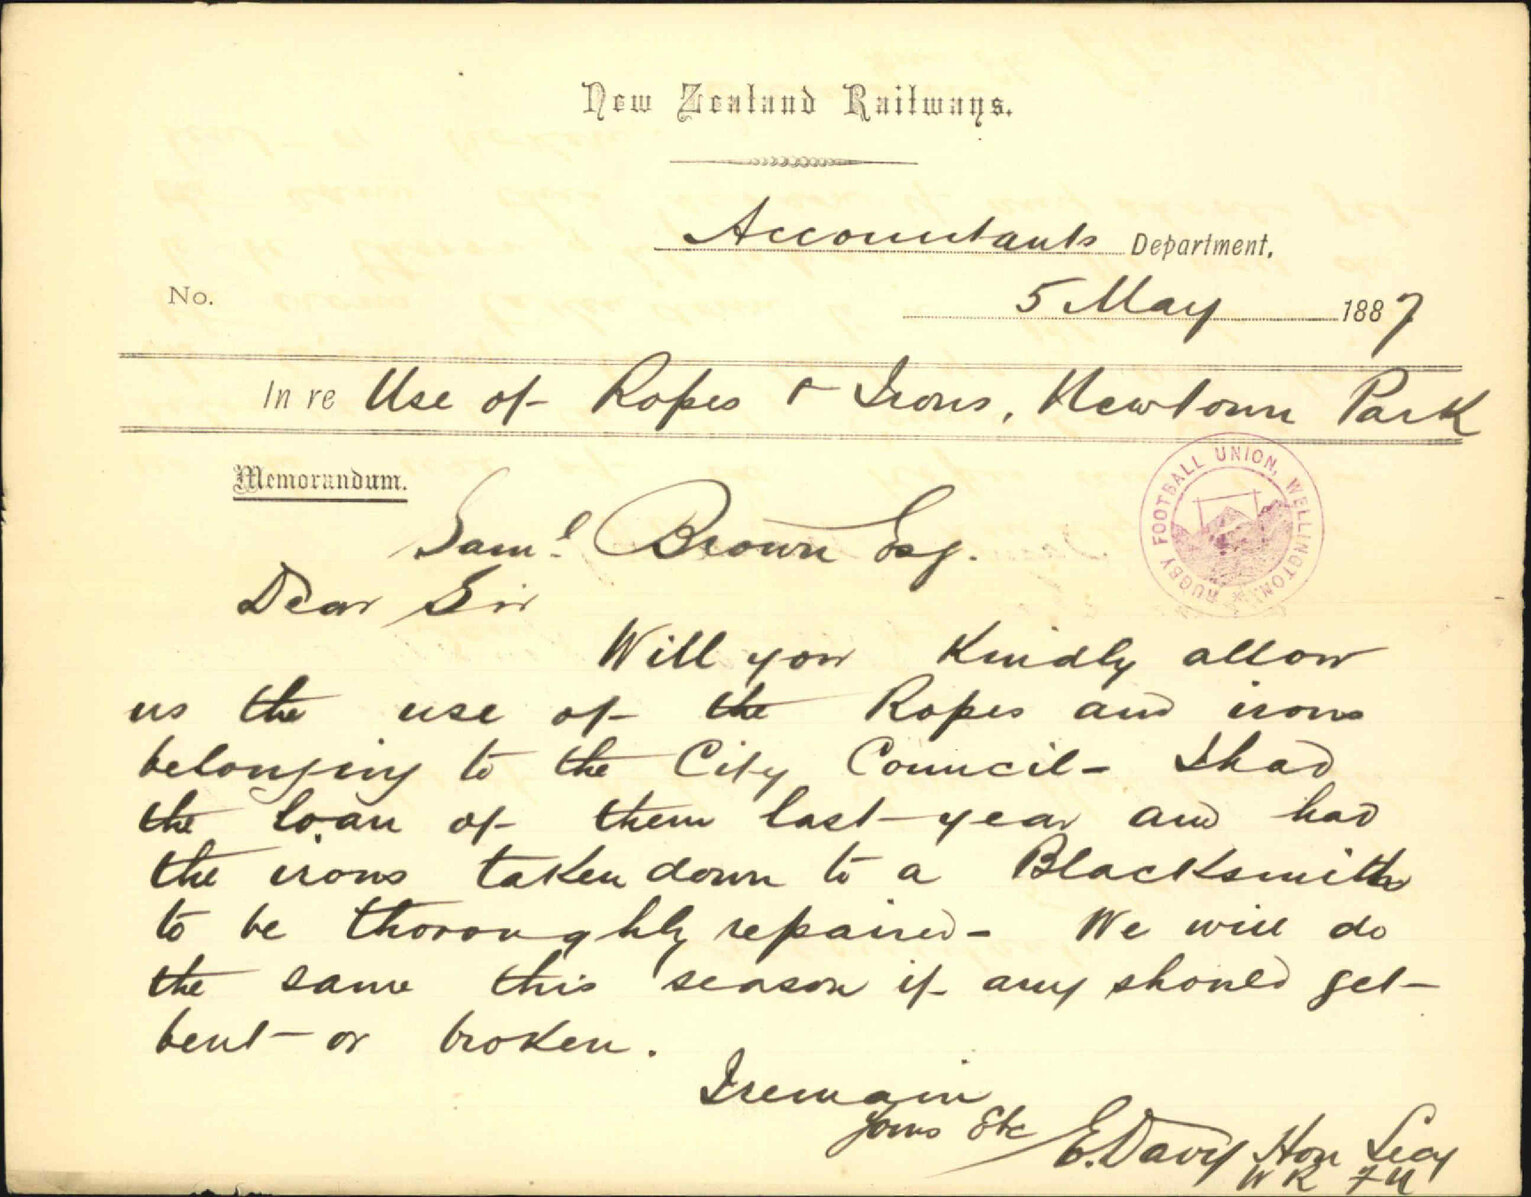 New Zealand Railways.
Accountants Department,
No.
5 May 1887
In re Use of Ropes & Irons, Newtown Park
Memorandum.
RUGBY FOOTBALL UNION, WELLINGTON
Saml. Brown Esq.
Dear Sir
Will you kindly allow
us the use of the Ropes and irons
belonging to the City Council - I had
the loan of them last year and had
the irons taken down to a Blacksmith
to be thoroughly repaired - We will do
the same this season if any should get
bent or broken.
I remain
Yours Etc
E. Davy Hon Secy
W R F U